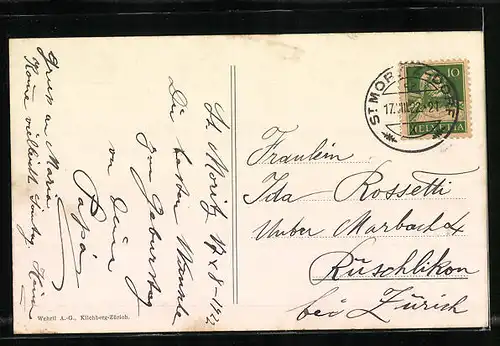 St. Moritz 17 x 8 - 1922
Die besten Wünsche
zum Geburtstag
von Dein
Papa
Gruss an Maria
Komme vielleicht Sonntag Heim
ST MORITZ DORF
17. VIII. 22 - 21
10
HELVETIA
Fräulein
Ida Rossetti
Unter Marbach &
Rüschlikon
bei Zürich
Wehrli A.-G., Kilchberg-Zürich.